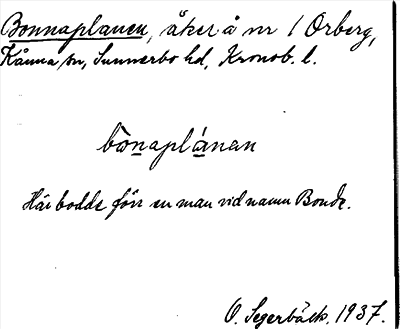 Bonnaplanen, åker å nr 1 Orberg,
Kånna sn, Sunnerbo hd, Kronob. l.
bònaplánan
Här bodde förr en man vid namn Bonde.
O. Segerbäck. 1937.